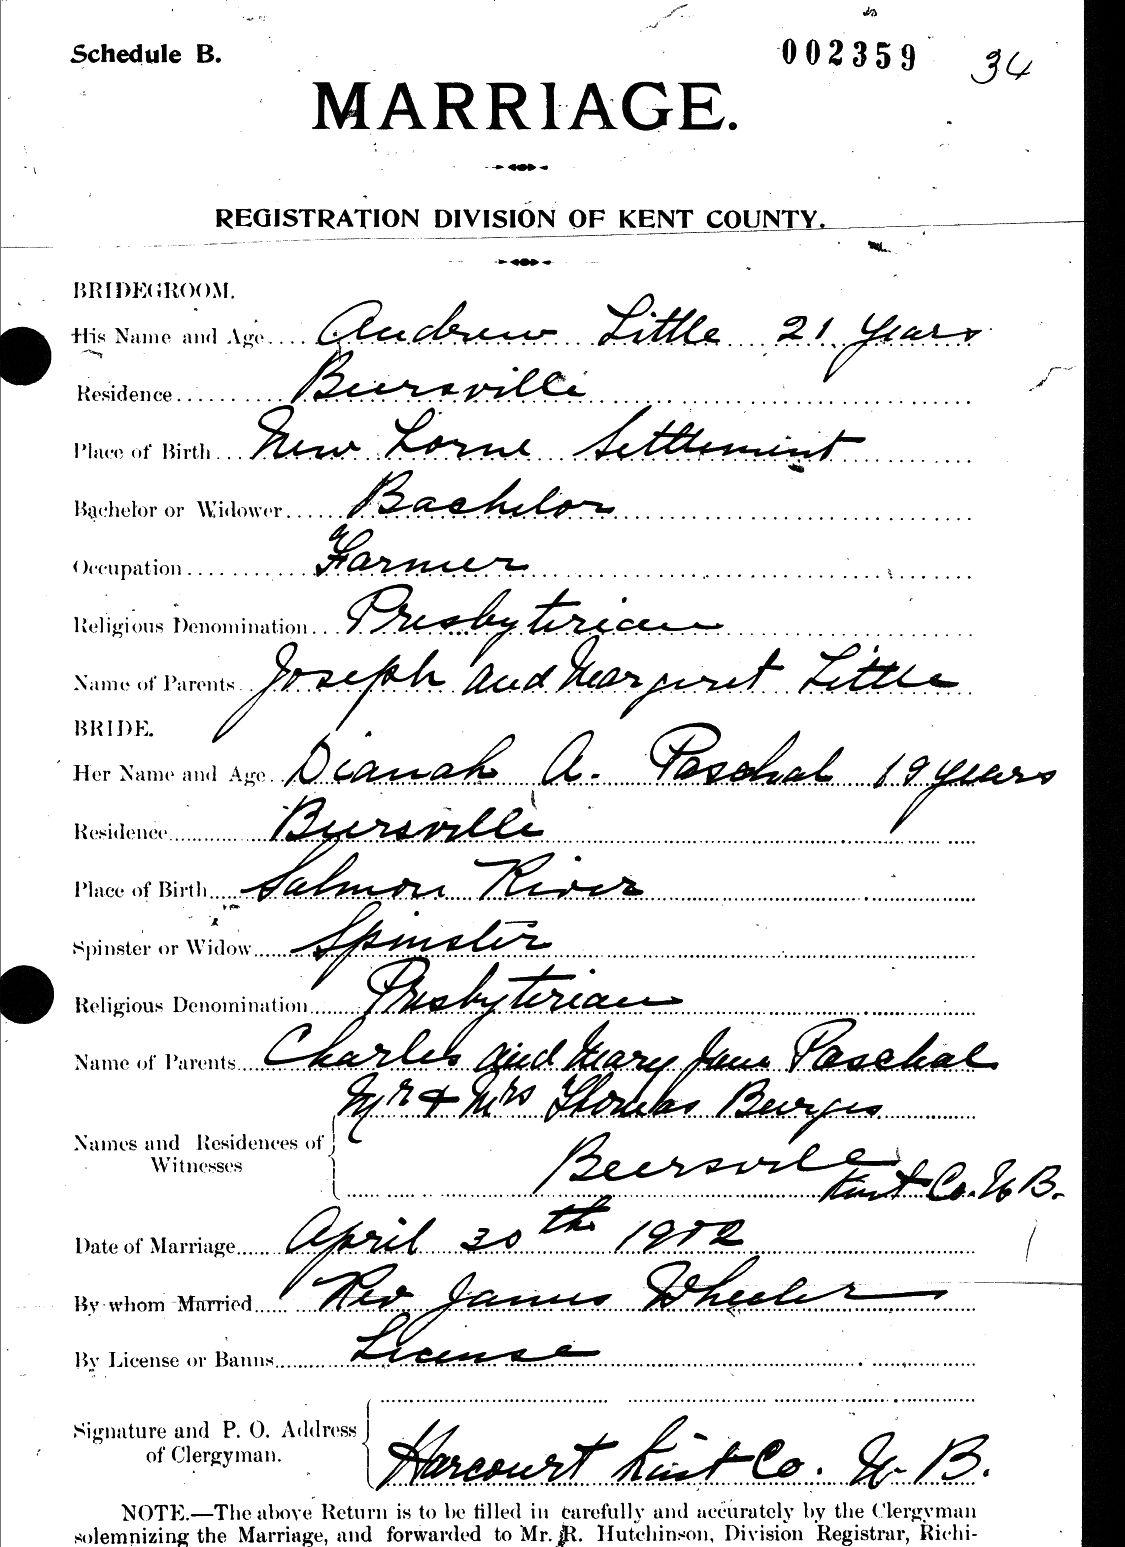 Schedule B.
002359 34
MARRIAGE.
REGISTRATION DIVISION OF KENT COUNTY.
BRIDEGROOM.
His Name and Age.... Andrew Little 21 years
Residence.......... Beersville
Place of Birth... New Lorne Settlement
Bachelor or Widower...... Bachelor
Occupation............ Farmer
Religious Denomination... Presbyterian
Name of Parents.. Joseph and Margaret Little
BRIDE.
Her Name and Age.. Dianah A. Paschal 19 years
Residence........... Beersville
Place of Birth..... Salmon River
Spinster or Widow...... Spinster
Religious Denomination....... Presbyterian
Name of Parents.... Charles and Mary Jane Paschal
Mr & Mrs Thomas Beurges
Names and Residences of
Witnesses
Beersville
Kent Co. N B.
Date of Marriage...... April 30th 1902
By whom Married...... Rev James Wheeler
By License or Banns......... License
Signature and P. O. Address
of Clergyman.
Harcourt Kent Co. N. B.
NOTE.—The above Return is to be filled in carefully and accurately by the Clergyman
solemnizing the Marriage, and forwarded to Mr. R. Hutchinson, Division Registrar, Richi-